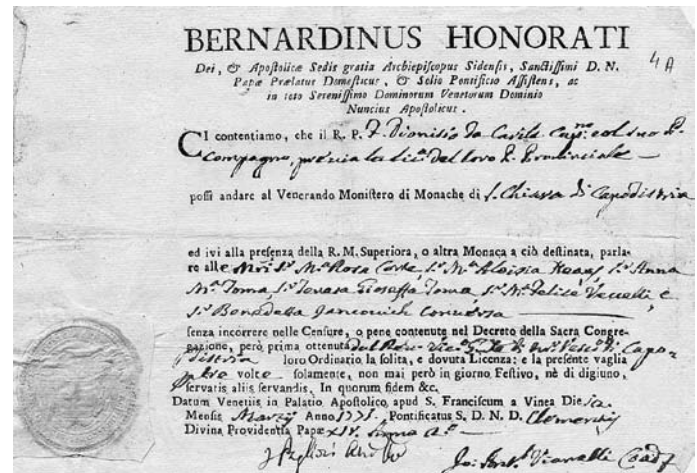 BERNARDINUS HONORATI
4A
Dei, & Apoſtolicæ Sedis gratia Archiepiſcopus Sidenſis, Sanctiſſimi D. N.
Papæ Prælatus Domeſticus, & Solio Pontificio Aſſiſtens, ac
in toto Sereniſſimo Dominorum Venetorum Dominio
Nuncius Apoſtolicus.
CI contentiamo, che il R. P. F. Dionisio da
Compagno, previa la lic.ª del loro P. Provinciale
poſſi andare al Venerando Moniſtero di Monache di S. Chiara di Capodistria
ed ivi alla preſenza della R. M. Superiora, o altra Monaca a ciò deſtinata, parla-
re alle M.ª Rosa Sr. M.ª Aloisia Sr. Anna
M.ª Toma, Sr. Teresa Gioseffa Toma, Sr. M.ª Felice e
Sr. Benedetta
ſenza incorrere nelle Cenſure, o pene contenute nel Decreto della Sacra Congre-
gazione, però prima ottenuta di Capo-
distria loro Ordinario la ſolita, e dovuta Licenza: e la preſente vaglia
volte ſolamente, non mai però in giorno Feſtivo, nè di digiuno,
ſervatis aliis ſervandis. In quorum fidem &c.
Datum Venetiis in Palatio Apoſtolico apud S. Franciſcum a Vinea Die
Menſis Martij Anno 1771. Pontificatus S. D. N. D. Clementis
Divina Providentia Papæ XIV. Anno